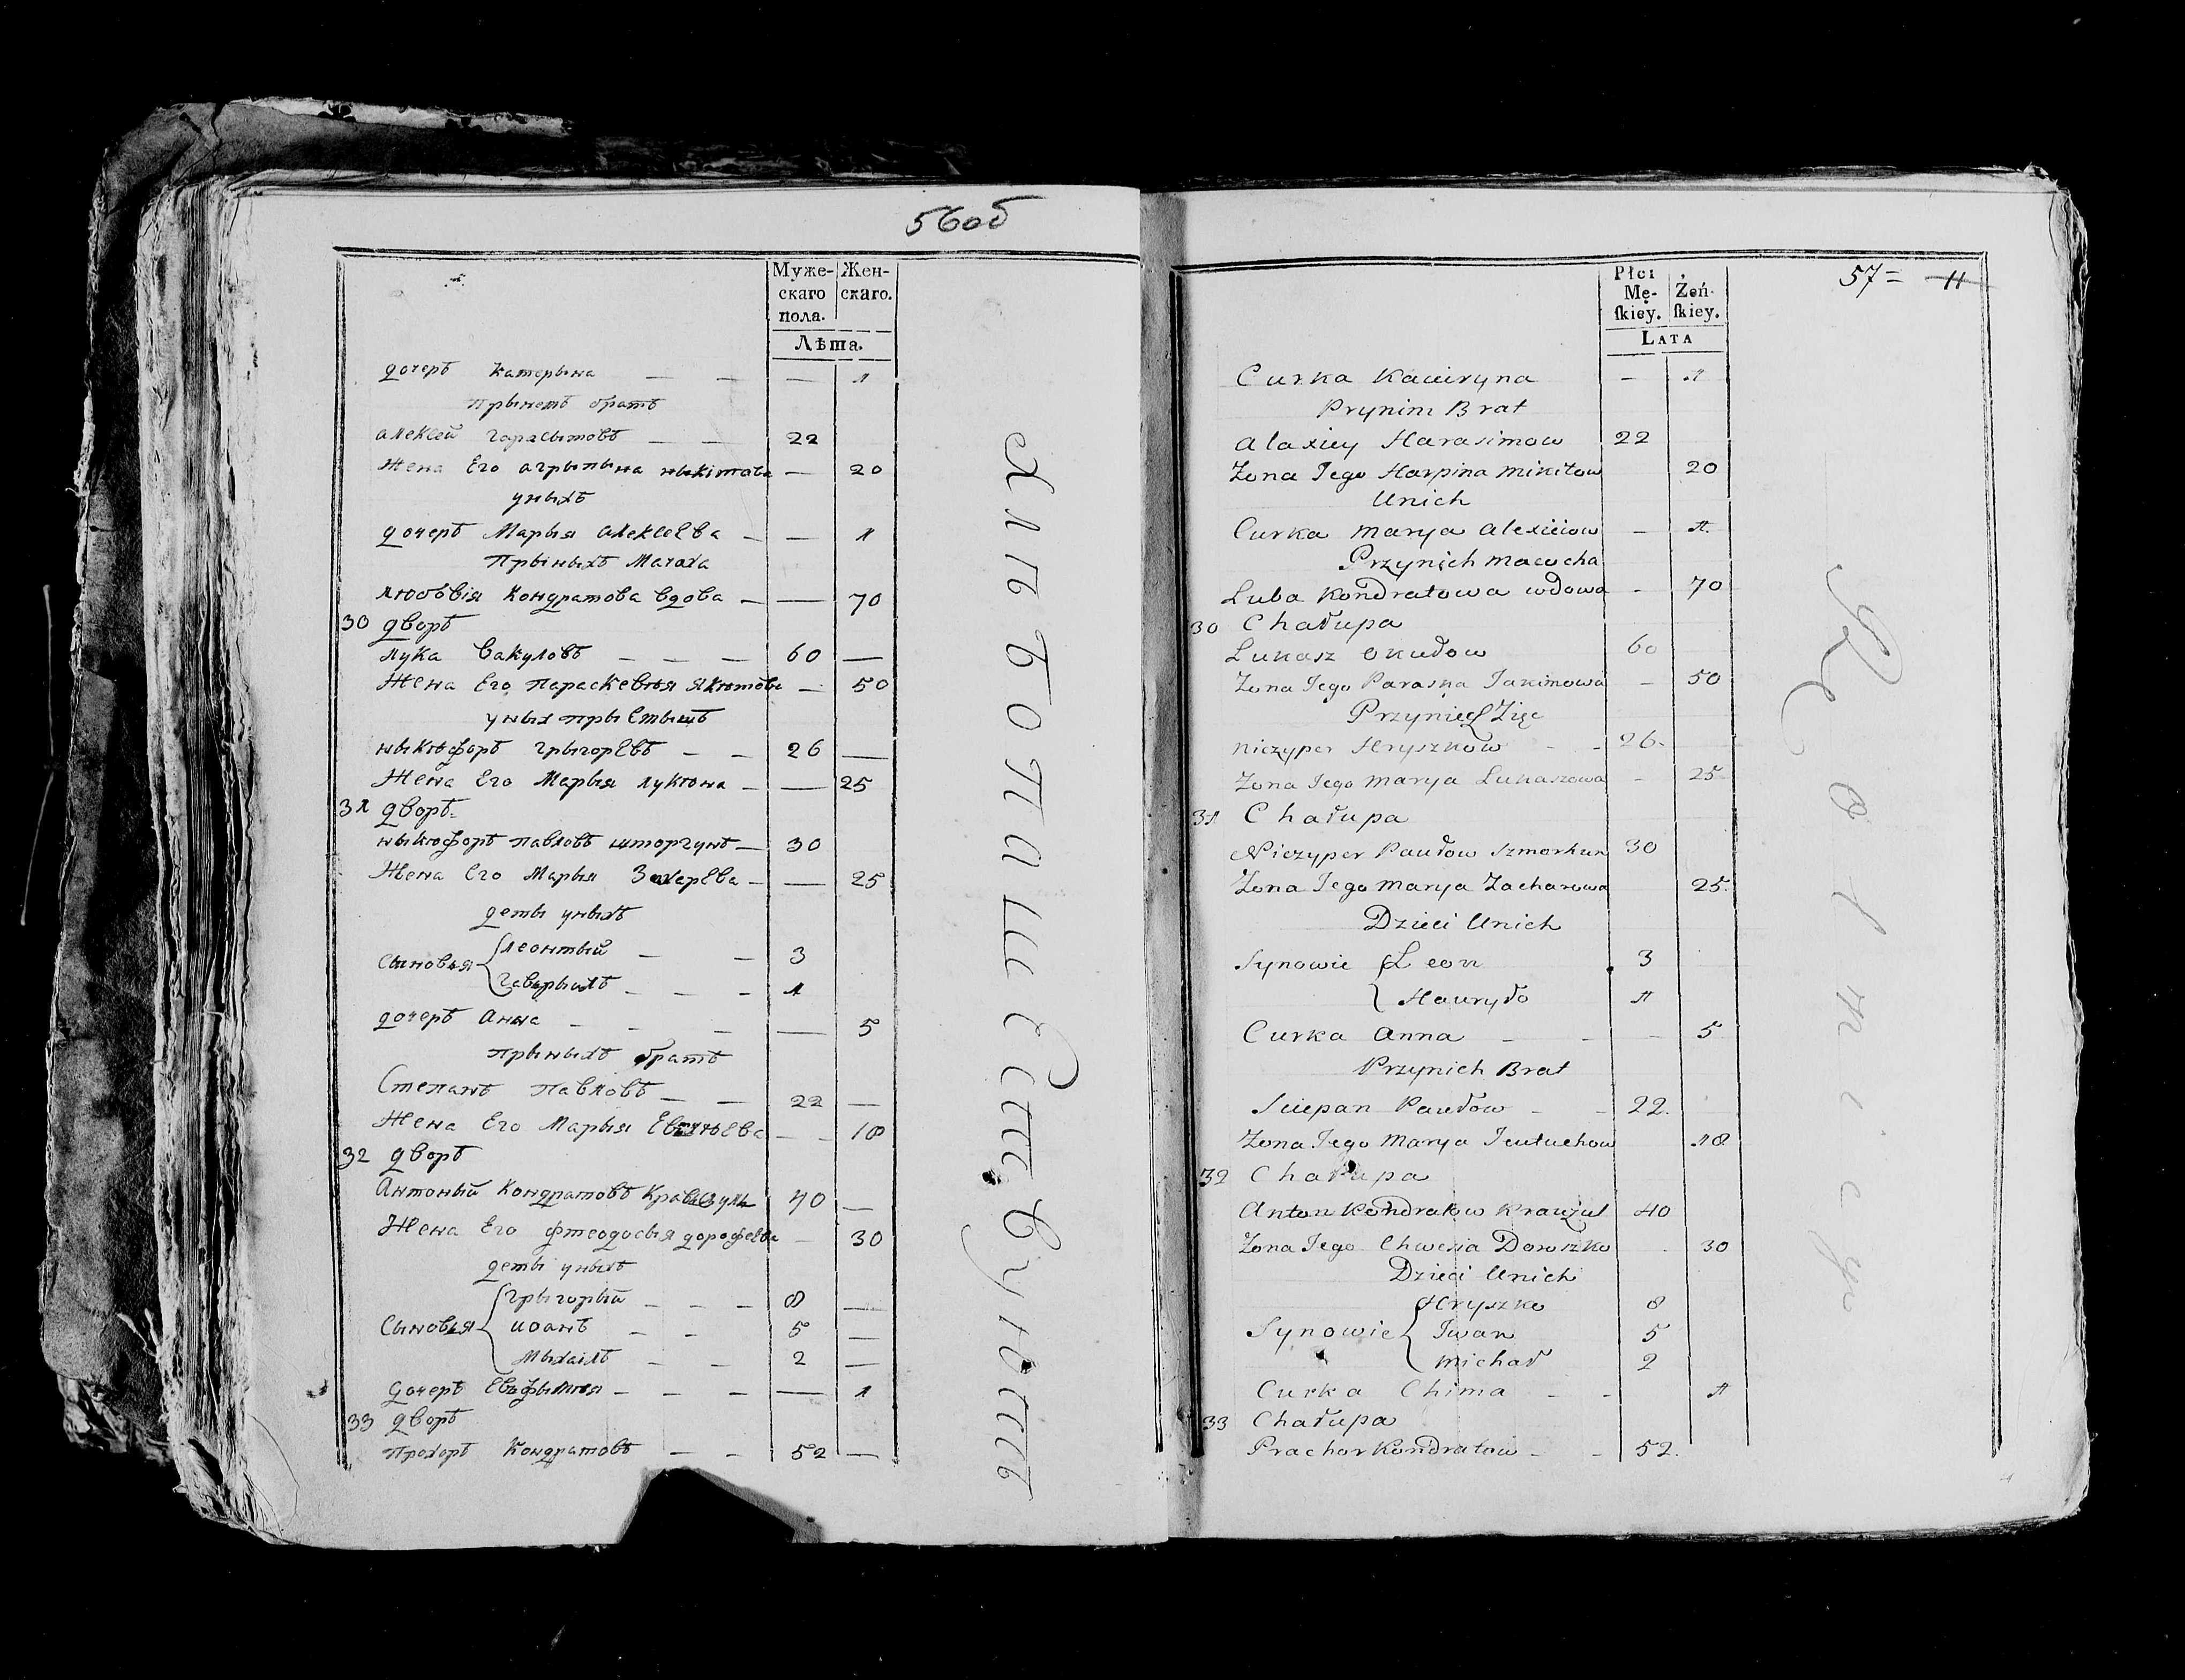 56об
Муже- Жен-
скаго скаго.
пола.
Лѣта.
дочеръ Катерына — — — 1
Прынемъ братъ
алексей Гарасымовъ — — 22
Жена Его агрыпына ныкітова — 20
уныхъ
дочеръ Марыя алексеева — — 1
Прыныхъ Мачоха
Любовія Кондратова вдова — — 70
30 дворъ
лука Вакуловъ — — — 60 —
Жена Его Параскевія — 50
уныхъ
ныкіфоръ Грыгоревъ — — 26 —
Жена Его Марыя — — 25
31 дворъ
ныкіфоръ павловъ — 30
Жена Его Марыя Захарева — — 25
деты уныхъ
Сыновья { леонтый — — 3
Гаврыилъ — — — 1
дочеръ Анна — — — 5
прыныхъ братъ
Степанъ Павловъ — — 22 —
Жена Его Марыя — — 18
32 дворъ
Антоный Кондратовъ 40 —
Жена Его фтеодосыя дорофеева — 30
деты уныхъ
Грыгорый — — — 8 —
Сыновья { иоанъ — — 5 —
Мыхаилъ — — 2 —
дочеръ — — — — 1
33 дворъ
Прохоръ Кондратовъ — — 52 —
57= 11
Płci
Mę- Żeń-
ſkiey. ſkiey.
LATA
Curka Kaciryna — 1
Prynim Brat
Alaxiey Harasimow 22
Zona Jego Harpina Mikitow 20
Unich
Curka Marya Alexieiow — 1
Przynich Macocha
Luba Kondratowa wdowa - 70
30 Chałupa
Lukasz 60
Zona Jego Paraska Jakimowa — 50
Zięc
Niczyper Hryszkow - - 26
Zona Jego Marya Lukaszowa - 25
31 Chałupa
Niczyper Pawłow Szmorhun 30
Zona Jego Marya Zacharowa 25
Dzieci Unich
Synowie { Leon 3
Hauryło 1
Curka Anna - - - 5
Przynich Brat
Sciepan Pawłow - - 22.
Zona Jego Marya 18
32 Chałupa
Anton Kondratow Krauzul 40
Zona Jego Chwesia Doroszko 30
Dzieci Unich
Hryszko 8
Synowie { Iwan 5
Michał 2
Curka Chima - - 1
33 Chałupa
Prachor Kondratow - - 52.